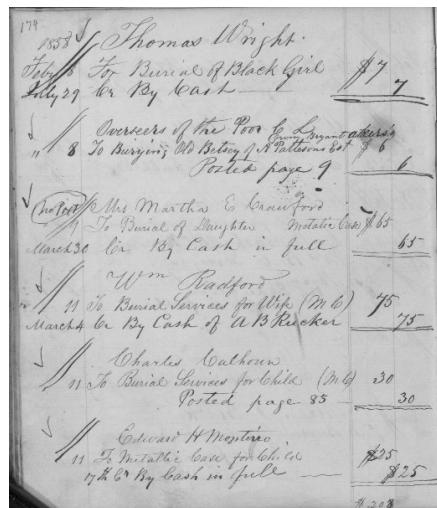 179
1858 Thomas Wright.
Feby 6 For Burial of Black Girl $7
July 29 Cr By Cash 7
Overseers of the Poor C L
" 8 To Burying Old Betsey of R Pattesons Est $6
Posted page 9 6
No Post Mrs Martha E Crawford
9 To Burial of Daughter Metalic Case $65
March 30 Cr By Cash in full 65
Wm Radford
11 To Burial Services for Wife (M C) 75
March 4 Cr By Cash of A B Rucker 75
Charles Calhoun
11 To Burial Services for Child (M C) 30
Posted page 85 30
Edward H Montiro
11 To Metallic Case for Child $25
17th Cr By Cash in full $25
$208